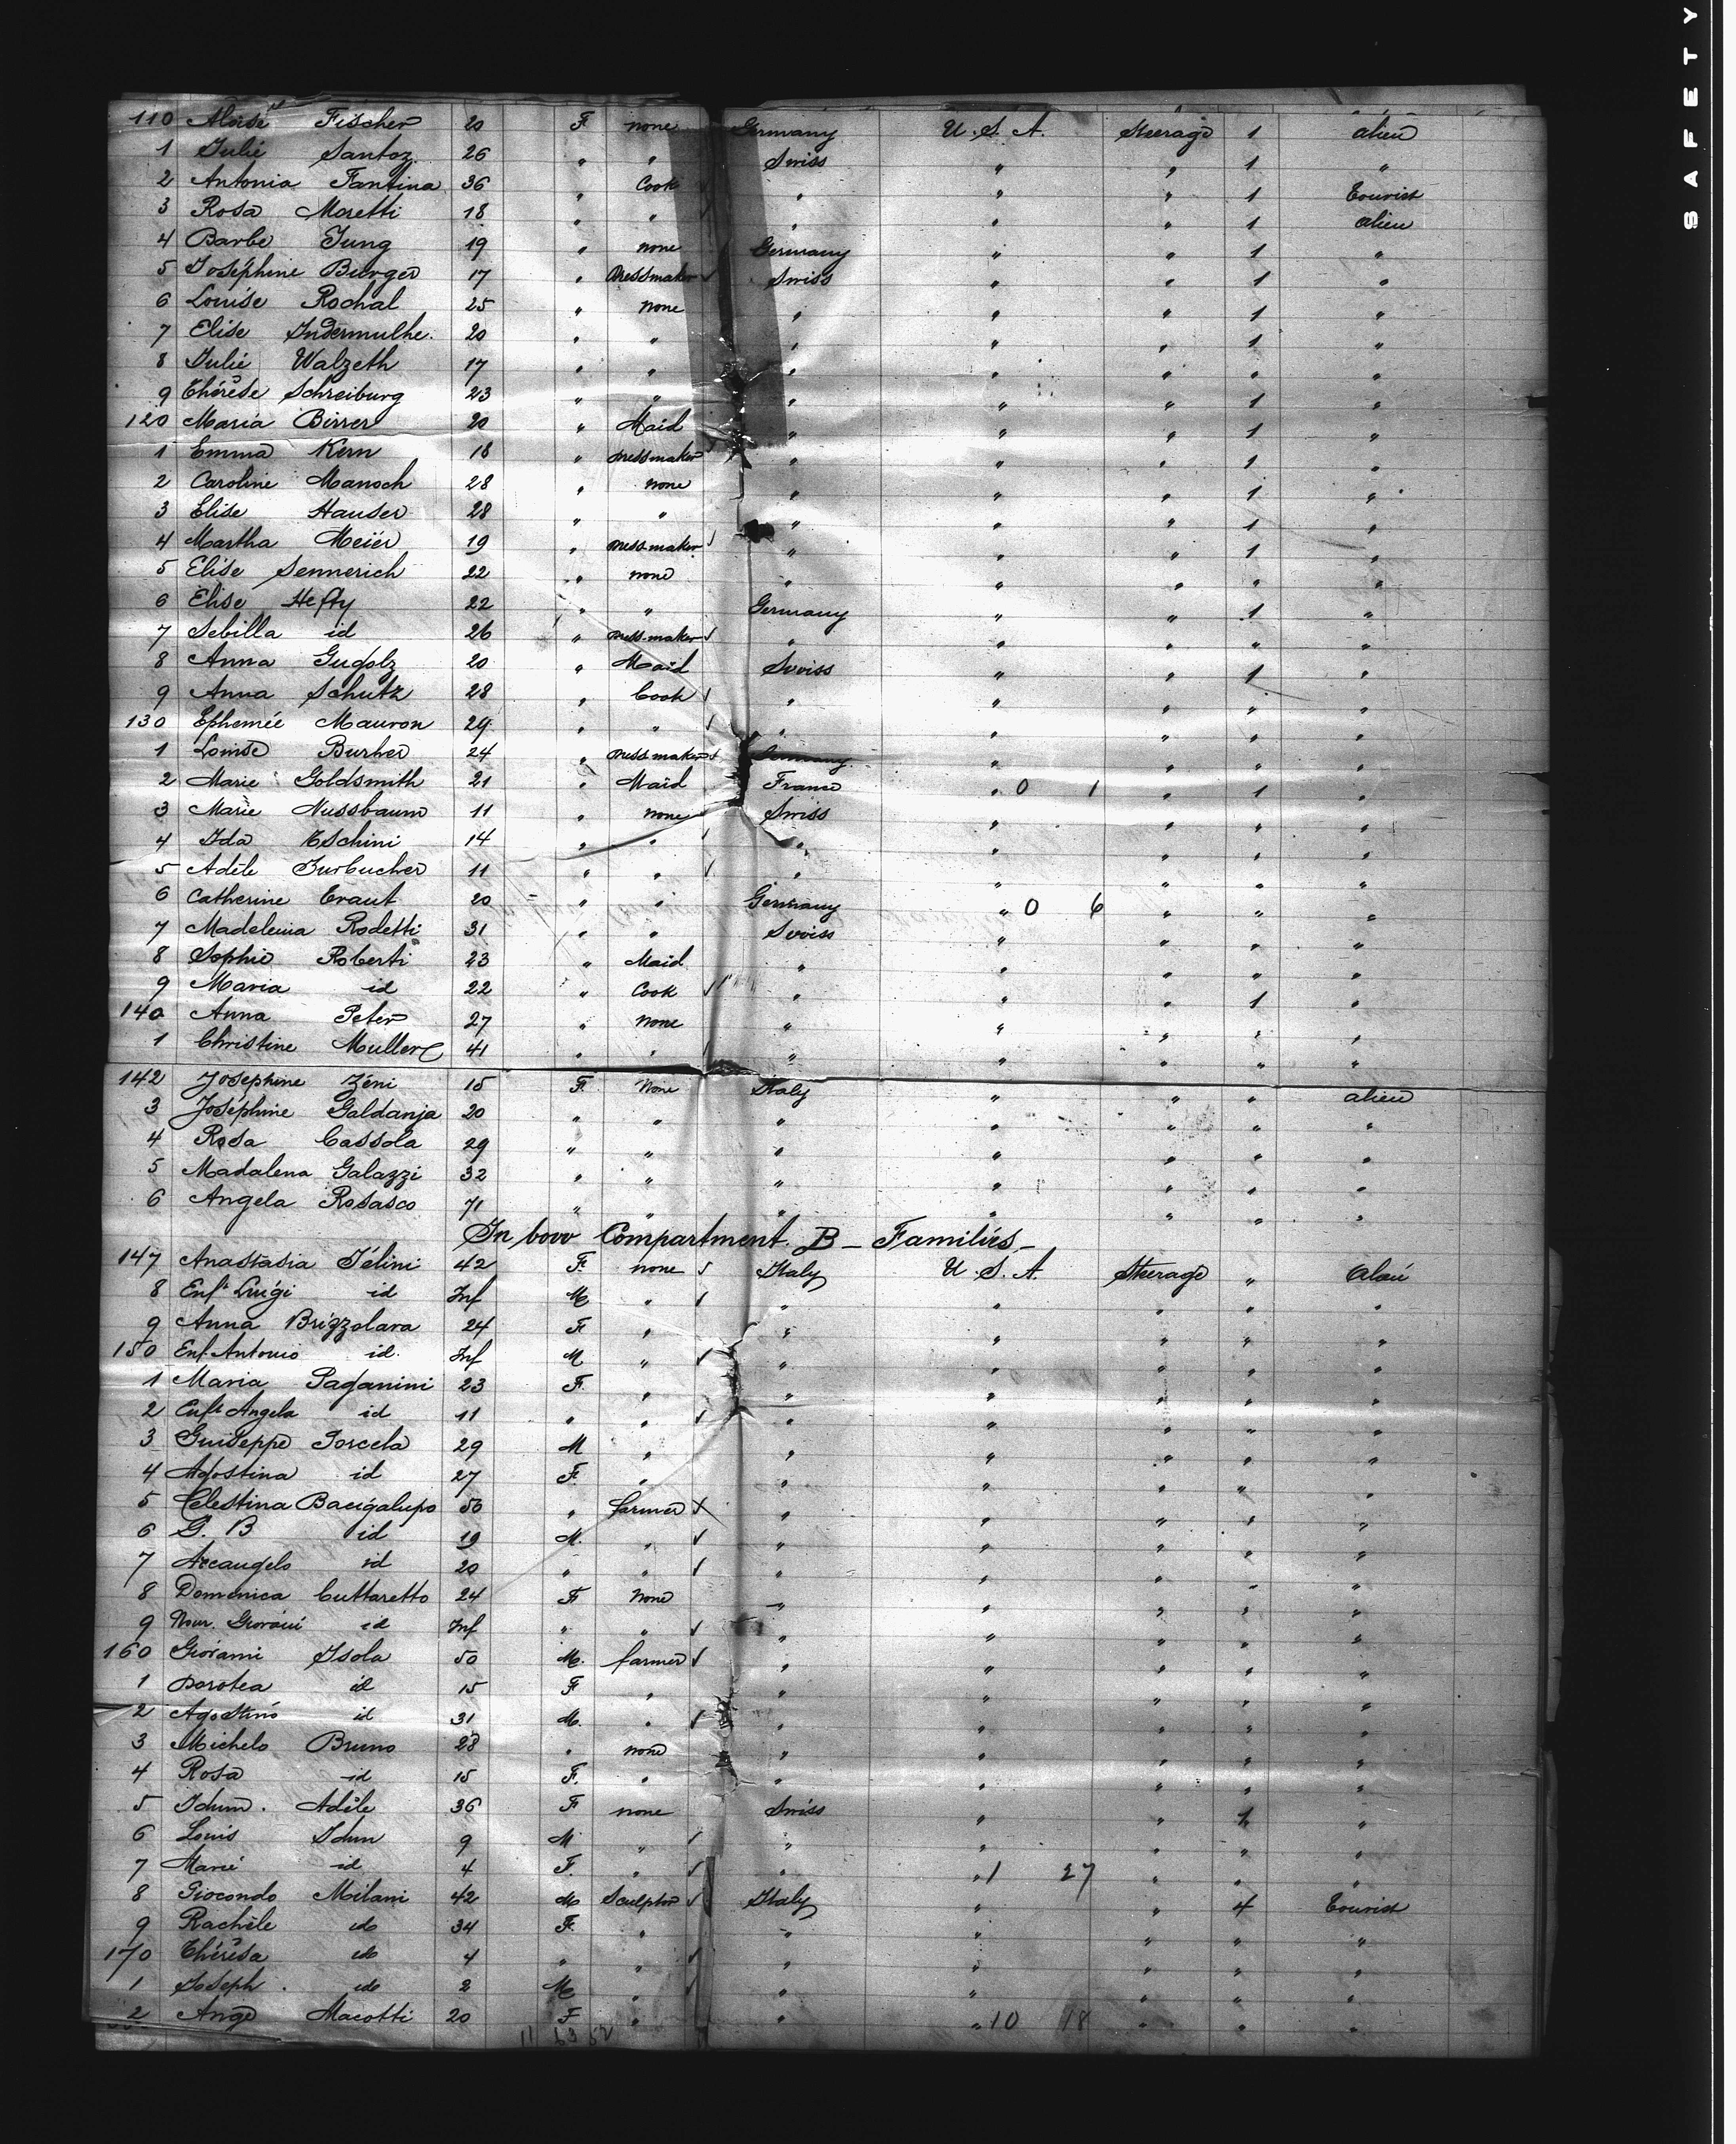 SAFETY
110 Aloïse Fischer 20 F none Germany U.S.A. Steerage 1 alien
1 Julie Santoz 26 " " Swiss " " 1 "
2 Antonia Fantina 36 " Cook " " " 1 tourist
3 Rosa Moretti 18 " " " " " 1 alien
4 Barbe Jung 19 " none Germany " " 1 "
5 Joséphine Burger 17 " Dressmaker Swiss " " 1 "
6 Louise Rochal 25 " none " " " 1 "
7 Elise Indermulhe 20 " " " " " 1 "
8 Julie Walzeth 17 " " " " " " "
9 Thérèse Schreiburg 23 " " " " " 1 "
120 Maria Birrer 20 " Maid " " " 1 "
1 Emma Kern 18 " Dressmaker " " " 1 "
2 Caroline Manoch 28 " none " " " 1 "
3 Elise Hauser 28 " " " " " 1 "
4 Martha Meier 19 " Dressmaker " " " 1 "
5 Elise Sennerich 22 " none " " " " "
6 Elise Hefty 22 " " Germany " " 1 "
7 Sebilla id 26 " Dressmaker " " " " "
8 Anna Gugolz 20 " Maid Swiss " " 1 "
9 Anna Schutz 28 " Cook " " " " "
130 Ephemée Mauron 29 " " " " " " "
1 Louise Burher 24 " Dressmaker Germany " " " "
2 Marie Goldsmith 21 " Maid France " 0 1 " 1 "
3 Marie Nussbaum 11 " none Swiss " " " "
4 Ida Eschini 14 " " " " " " "
5 Adèle Zurbucher 11 " " " " " " "
6 Catherine Craut 20 " " Germany " 0 6 " " "
7 Madeleina Rodetti 31 " " Swiss " " " "
8 Sophie Roberti 23 " Maid " " " " "
9 Maria id 22 " Cook " " " 1 "
140 Anna Peter 27 " none " " " " "
1 Christine Muller 41 " " " " " " "
142 Joséphine Zéni 15 F None Italy " " " alien
3 Joséphine Galdanja 20 " " " " " " "
4 Rosa Cassola 29 " " " " " " "
5 Madalena Galazzi 32 " " " " " " "
6 Angela Rosasco 71 " " " " " " "
In bow Compartment B - Families -
147 Anastasia Félini 42 F none Italy U.S.A. Steerage " Alien
8 Enft Luigi id Inf M " " " " " "
9 Anna Brizzolara 24 F " " " " " "
150 Enf. Antonio id. Inf M " " " " " "
1 Maria Paganini 23 F " " " " " "
2 Enft Angela id 11 " " " " " " "
3 Guiseppe Porcela 29 M " " " " " "
4 Agostina id 27 F " " " " " "
5 Celestina Bacigalupo 50 " farmer " " " " "
6 G. B id 19 M. " " " " " "
7 Arcangelo id 20 " " " " " " "
8 Domenica Cuttaretto 24 F None " " " " "
9 Nour. Giovani id Inf " " " " " " "
160 Giovanni Isola 50 M. farmer " " " " "
1 Dorotea id 15 F " " " " " "
2 Agostino id 31 M. " " " " " "
3 Michelo Bruno 28 " none " " " " "
4 Rosa id 15 F. " " " " " "
5 Idum. Adèle 36 F none Swiss " " 1 "
6 Louis Idum 9 M " " " " " "
7 Marie id 4 F. " " " 1 27 " " "
8 Giocondo Milani 42 M Sculptor Italy " " 4 tourist
9 Rachèle id 34 F " " " " " "
170 Thérèsa id 4 " " " " " " "
1 Joseph. id 2 M " " " " " "
2 Ange Macotti 20 F " " " 10 18 " " "
11 63 52